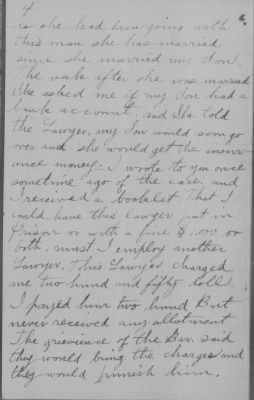 4
as she had been going with
this man she has married
since she married my Son.
The week after she was married
She asked me if my Son had a
bank account, and She told
the Lawyer, my Son would soon go
over and she would get the insur-
ance money. I wrote to you once
sometime ago of the case, and
I received a booklet that I
could have this lawyer put in
Prison or with a fine $1000 or
both. must I employ another
Lawyer. This Lawyer charged
me two hund and fifty doll.
I payed him two hund But
never received any allotment
The grievience of the Bar. said
they would bring the charges and
they would punish him.